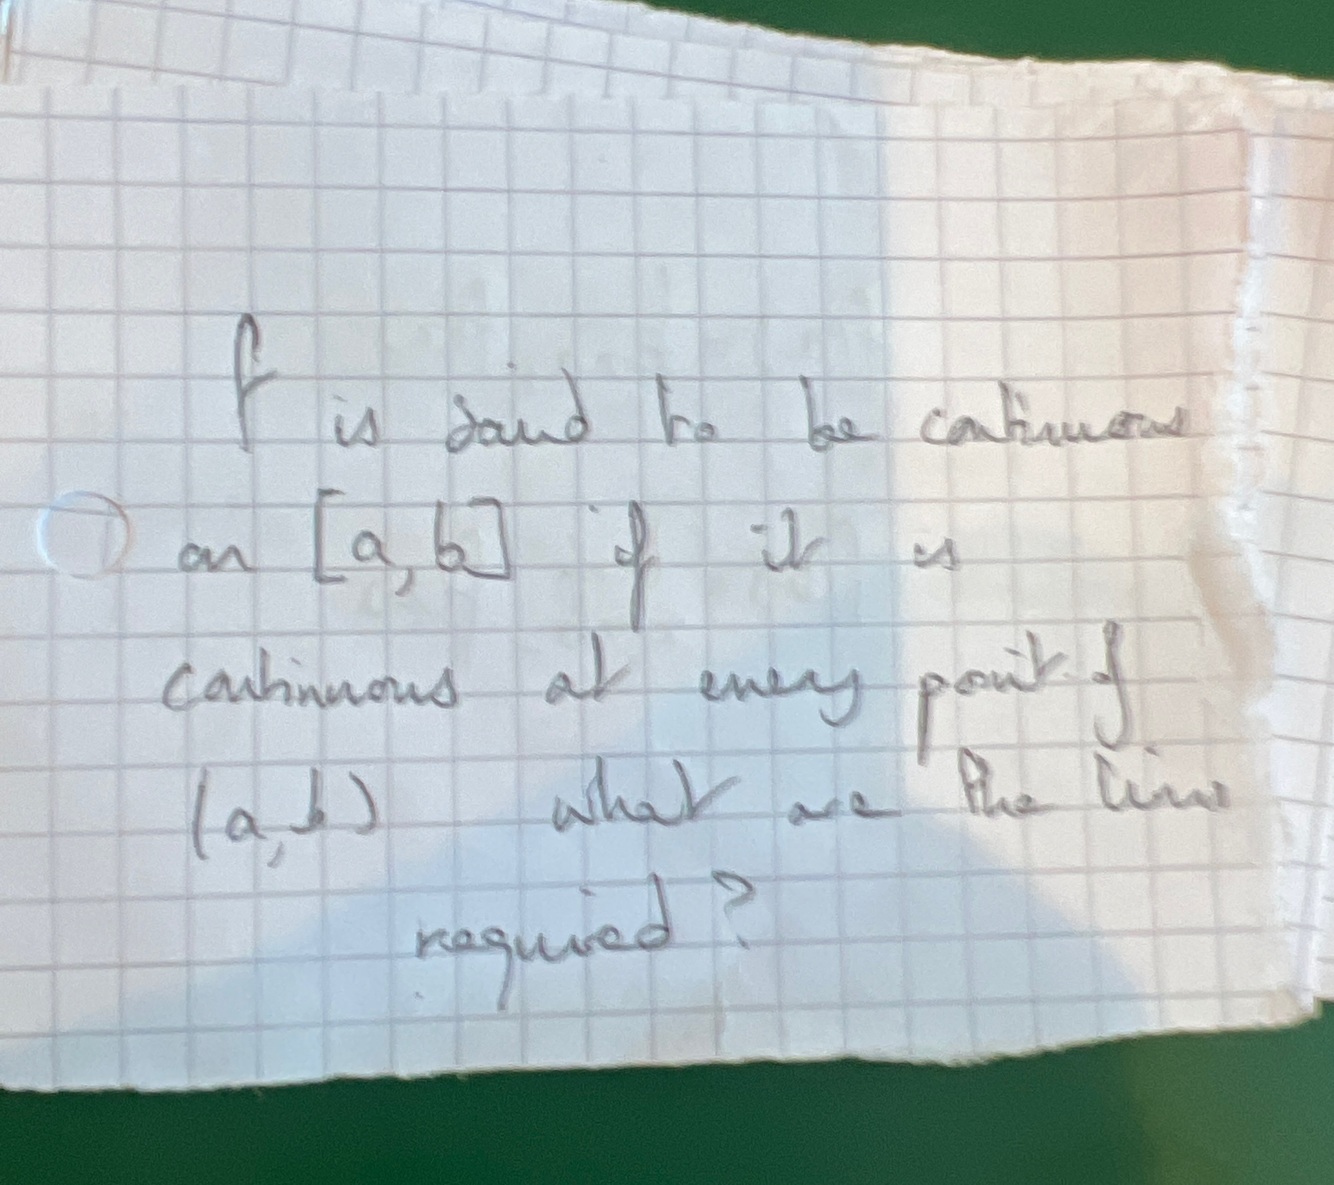 f is said to be continuous
on [a,b] if it is
continuous at every point of
(a,b) what are the lims
required?